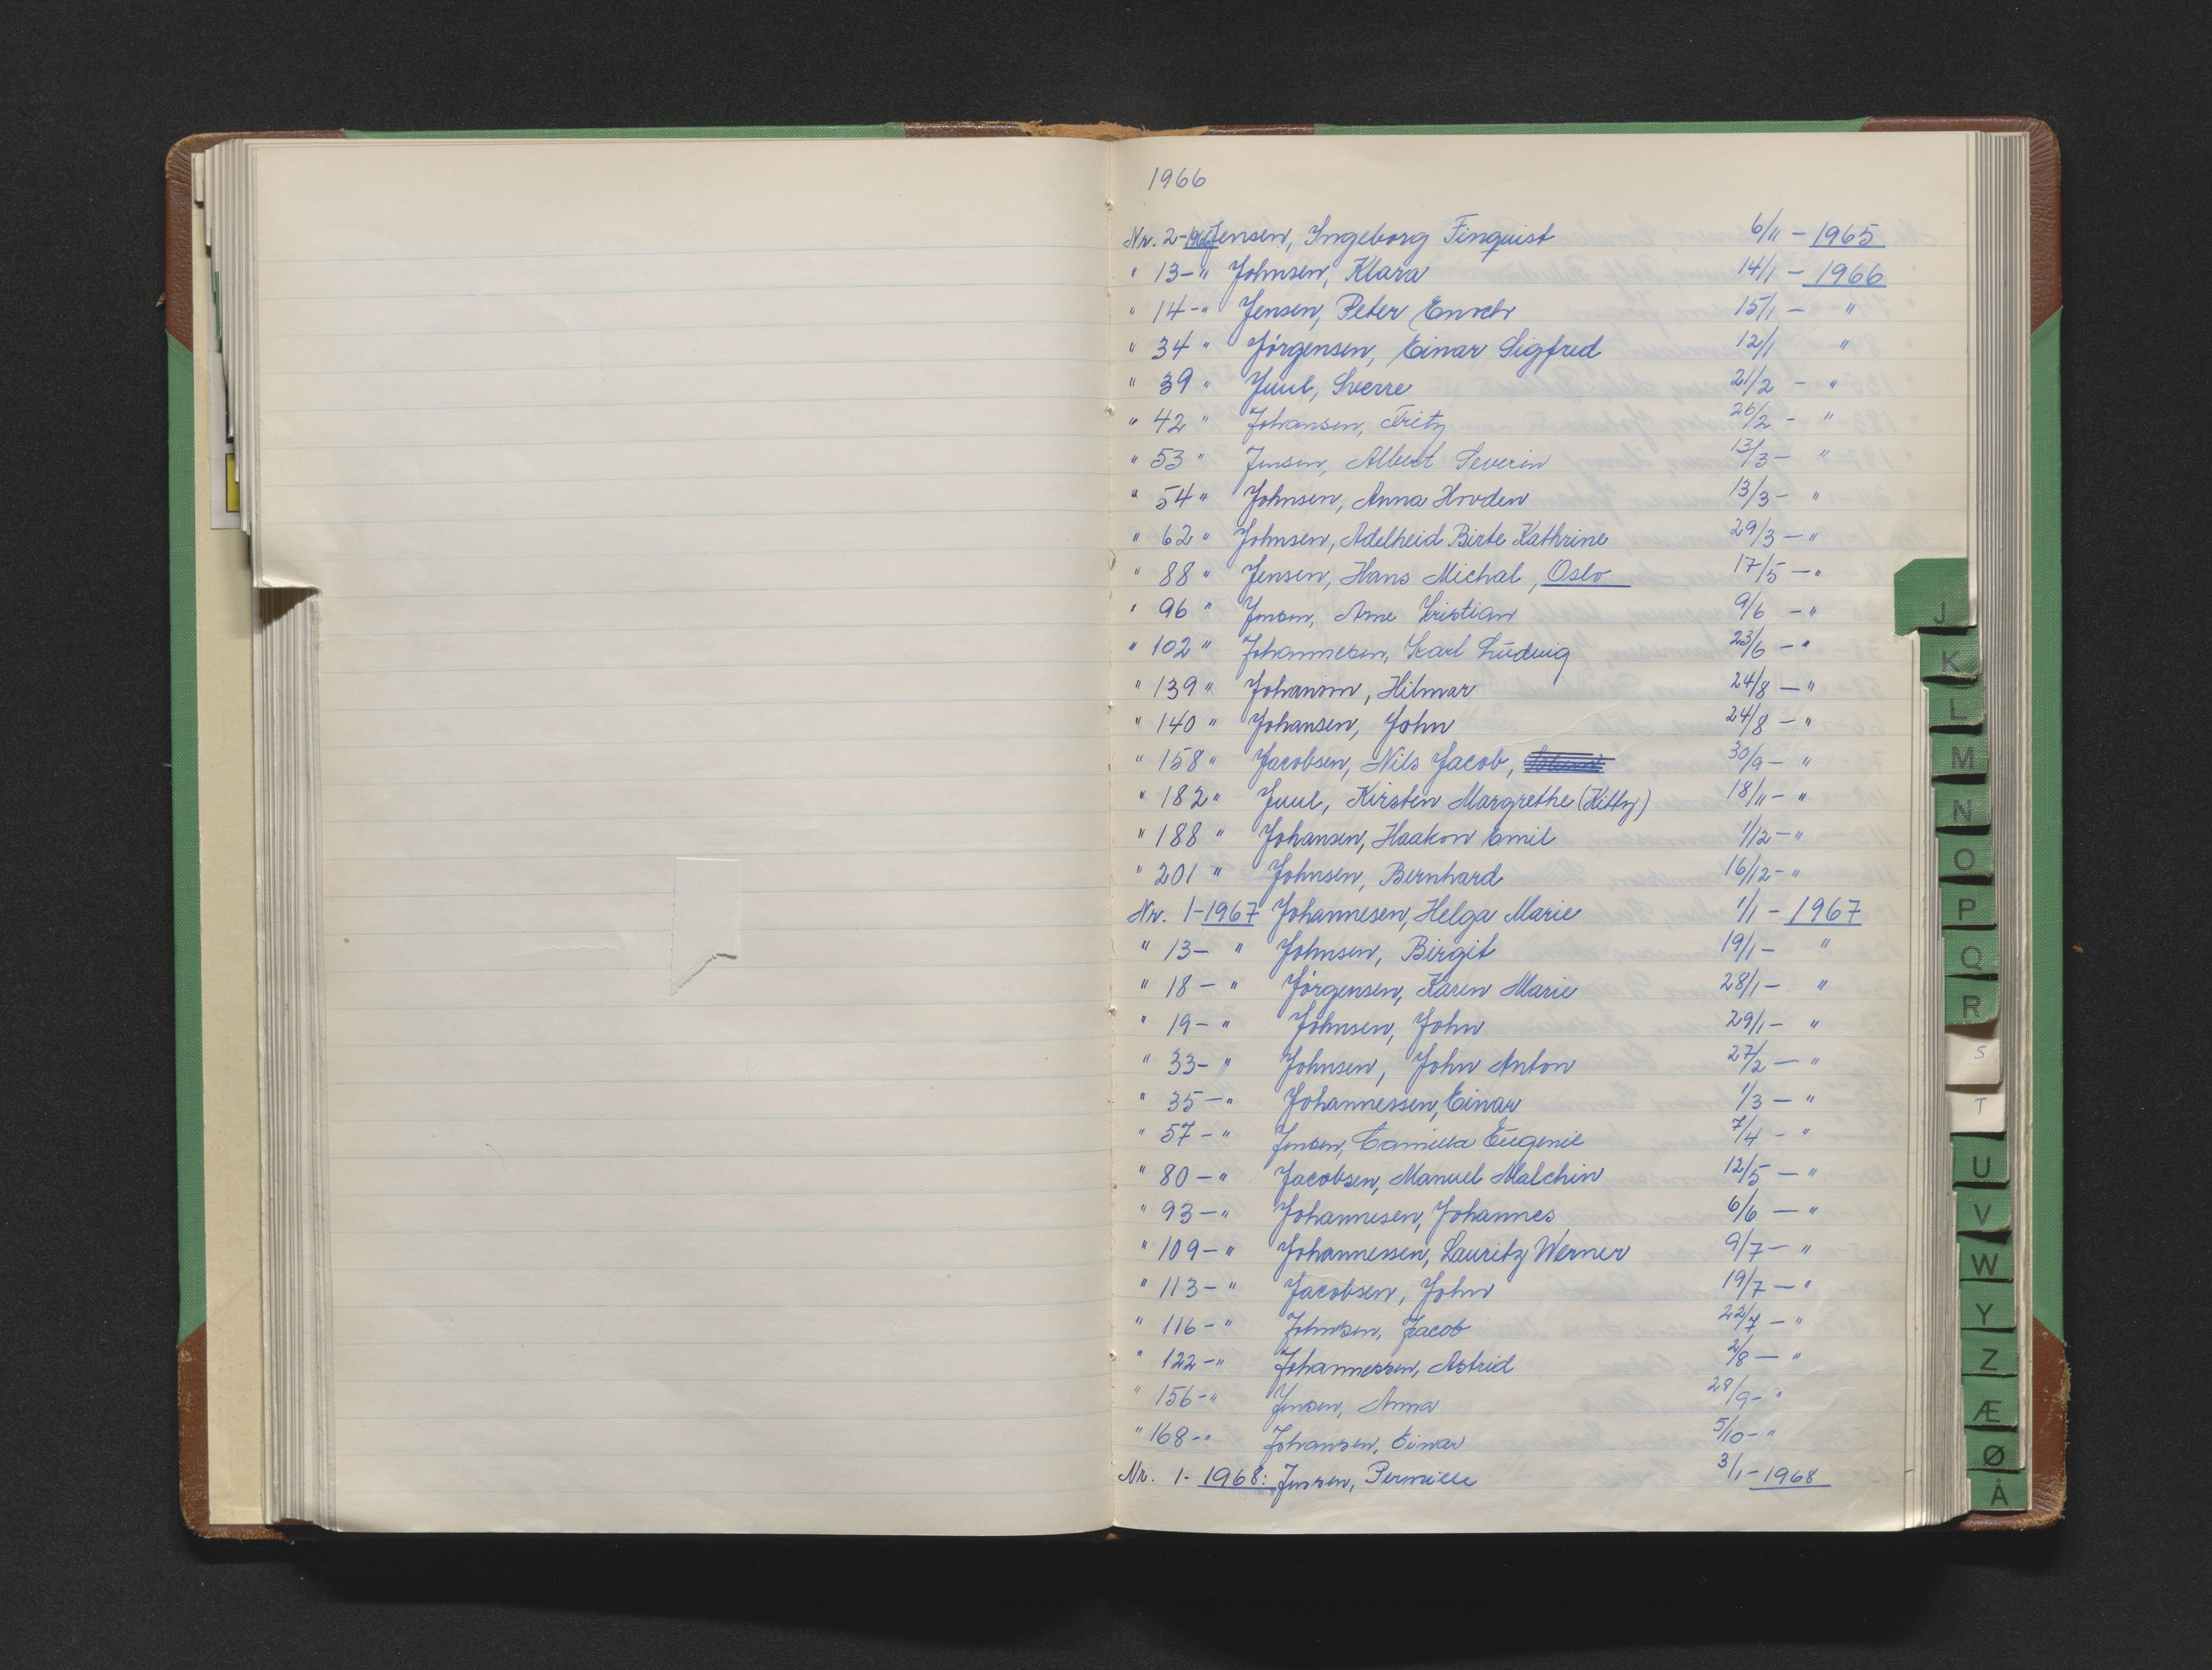 1966
Nr. 2-1966 Jensen, Ingeborg Finquist 6/11 - 1965
" 13-" Johnsen, Klara 14/1 - 1966
" 14-" Jensen, Peter Enoch 15/1 - "
" 34 " Jørgensen, Einar Sigfred 12/1 "
" 39 " Juul, Sverre 21/2 - "
" 42 " Johansen, Fritz 26/2 - "
" 53 " Jensen, Albert Severin 13/3 - "
" 54 " Johnsen, Anna Hovden 13/3 - "
" 62 " Johnsen, Adelheid Birte Kathrine 29/3 - "
" 88 " Jensen, Hans Michal, Oslo 17/5 - "
" 96 " Jensen, Arne Kristian 9/6 - "
" 102 " Johannesen, Karl Ludvig 23/6 - "
" 139 " Johansen, Hilmar 24/8 - "
" 140 " Johansen, John 24/8 - "
" 158 " Jacobsen, Nils Jacob, 30/9 - "
" 182 " Juul, Kirsten Margrethe (Kitty) 18/11 - "
" 188 " Johansen, Haakon Emil 1/12 - "
" 201 " Johnsen, Bernhard 16/12 - "
Nr. 1-1967 Johannesen, Helga Marie 1/1 - 1967
" 13- " Johnsen, Birgit 19/1 - "
" 18 - " Jørgensen, Karen Marie 28/1 - "
" 19- " Johnsen, John 29/1 - "
" 33- " Johnsen, John Anton 27/2 - "
" 35 - " Johannessen, Einar 1/3 - "
" 57 - " Jensen, Camilla Eugenie 7/4 - "
" 80 - " Jacobsen, Manuel Malchin 12/5 - "
" 93 - " Johannesen, Johannes 6/6 - "
" 109 - " Johannessen, Lauritz Werner 9/7 - "
" 113 - " Jacobsen, John 19/7 - "
" 116 - " Johnsen, Jacob 22/7 - "
" 122 - " Johannessen, Astrid 2/8 - "
" 156 - " Jensen, Anna 28/9 - "
" 168 - " Johansen, Einar 5/10 - "
Nr. 1- 1968: Jenssen, Pernille 3/1 - 1968
J
K
L
M
N
O
P
Q
R
S
T
U
V
W
Y
Z
Æ
Ø
Å